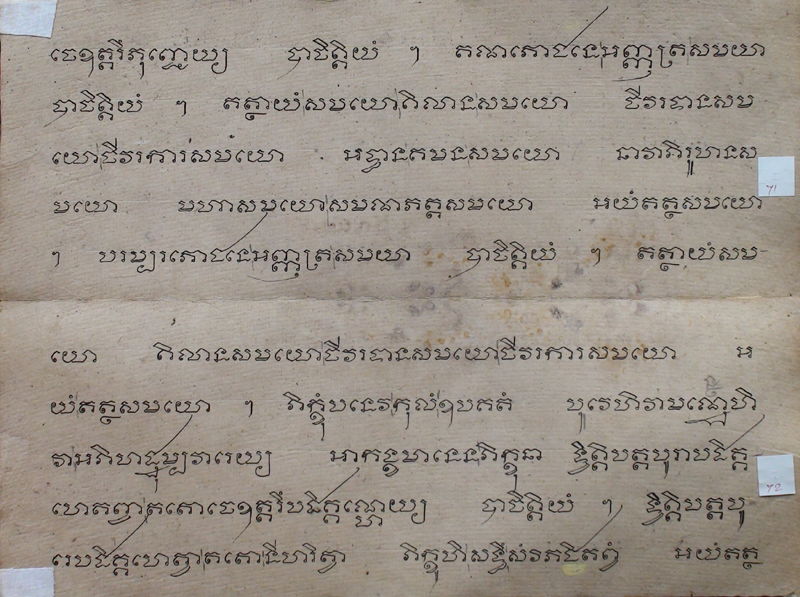 ចេឧត្តរឹភុញ្ជេយ្យ បាចិត្តិយំ ៗ គណភោជនេអញ្ញត្រសមយា
បាចិត្តិយំ ៗ តត្ថាយំសមយោគិលានសមយោ ចីវរទានសម
យោចីវរការសមយោ អទ្ធានគមនសមយោ នាវាភិរូហនស
មយោ មហាសមយោសមណភត្តសមយោ អយំតត្ថសមយោ
ៗ បរម្បរភោជនេអញ្ញត្រសមយា បាចិត្តិយំ ៗ តត្ថាយំសម
71
យោ គិលានសមយោចីវរទានសមយោចីវរការសមយោ អ
យំតត្ថសមយោ ៗ ភិក្ខុំបនេវកុលំឧបគតំ បូវេហិវាមណ្ថេហិ
វាអភិហដ្ឋុម្បវារេយ្យ អាកង្ខមានេនភិក្ខុនា ទ្វិត្តិបត្តបុរាបដិគ្គ
ហេតព្វាតតោចេឧត្តរឹបដិគ្គណ្ហេយ្យ បាចិត្តិយំ ៗ ទ្វិត្តិបត្តបុ
រេបដិគ្គហេត្វាតតោនីហរិត្វា ភិក្ខុហិសទ្ធឹសំវភជិតព្វំ អយំតត្ថ
72